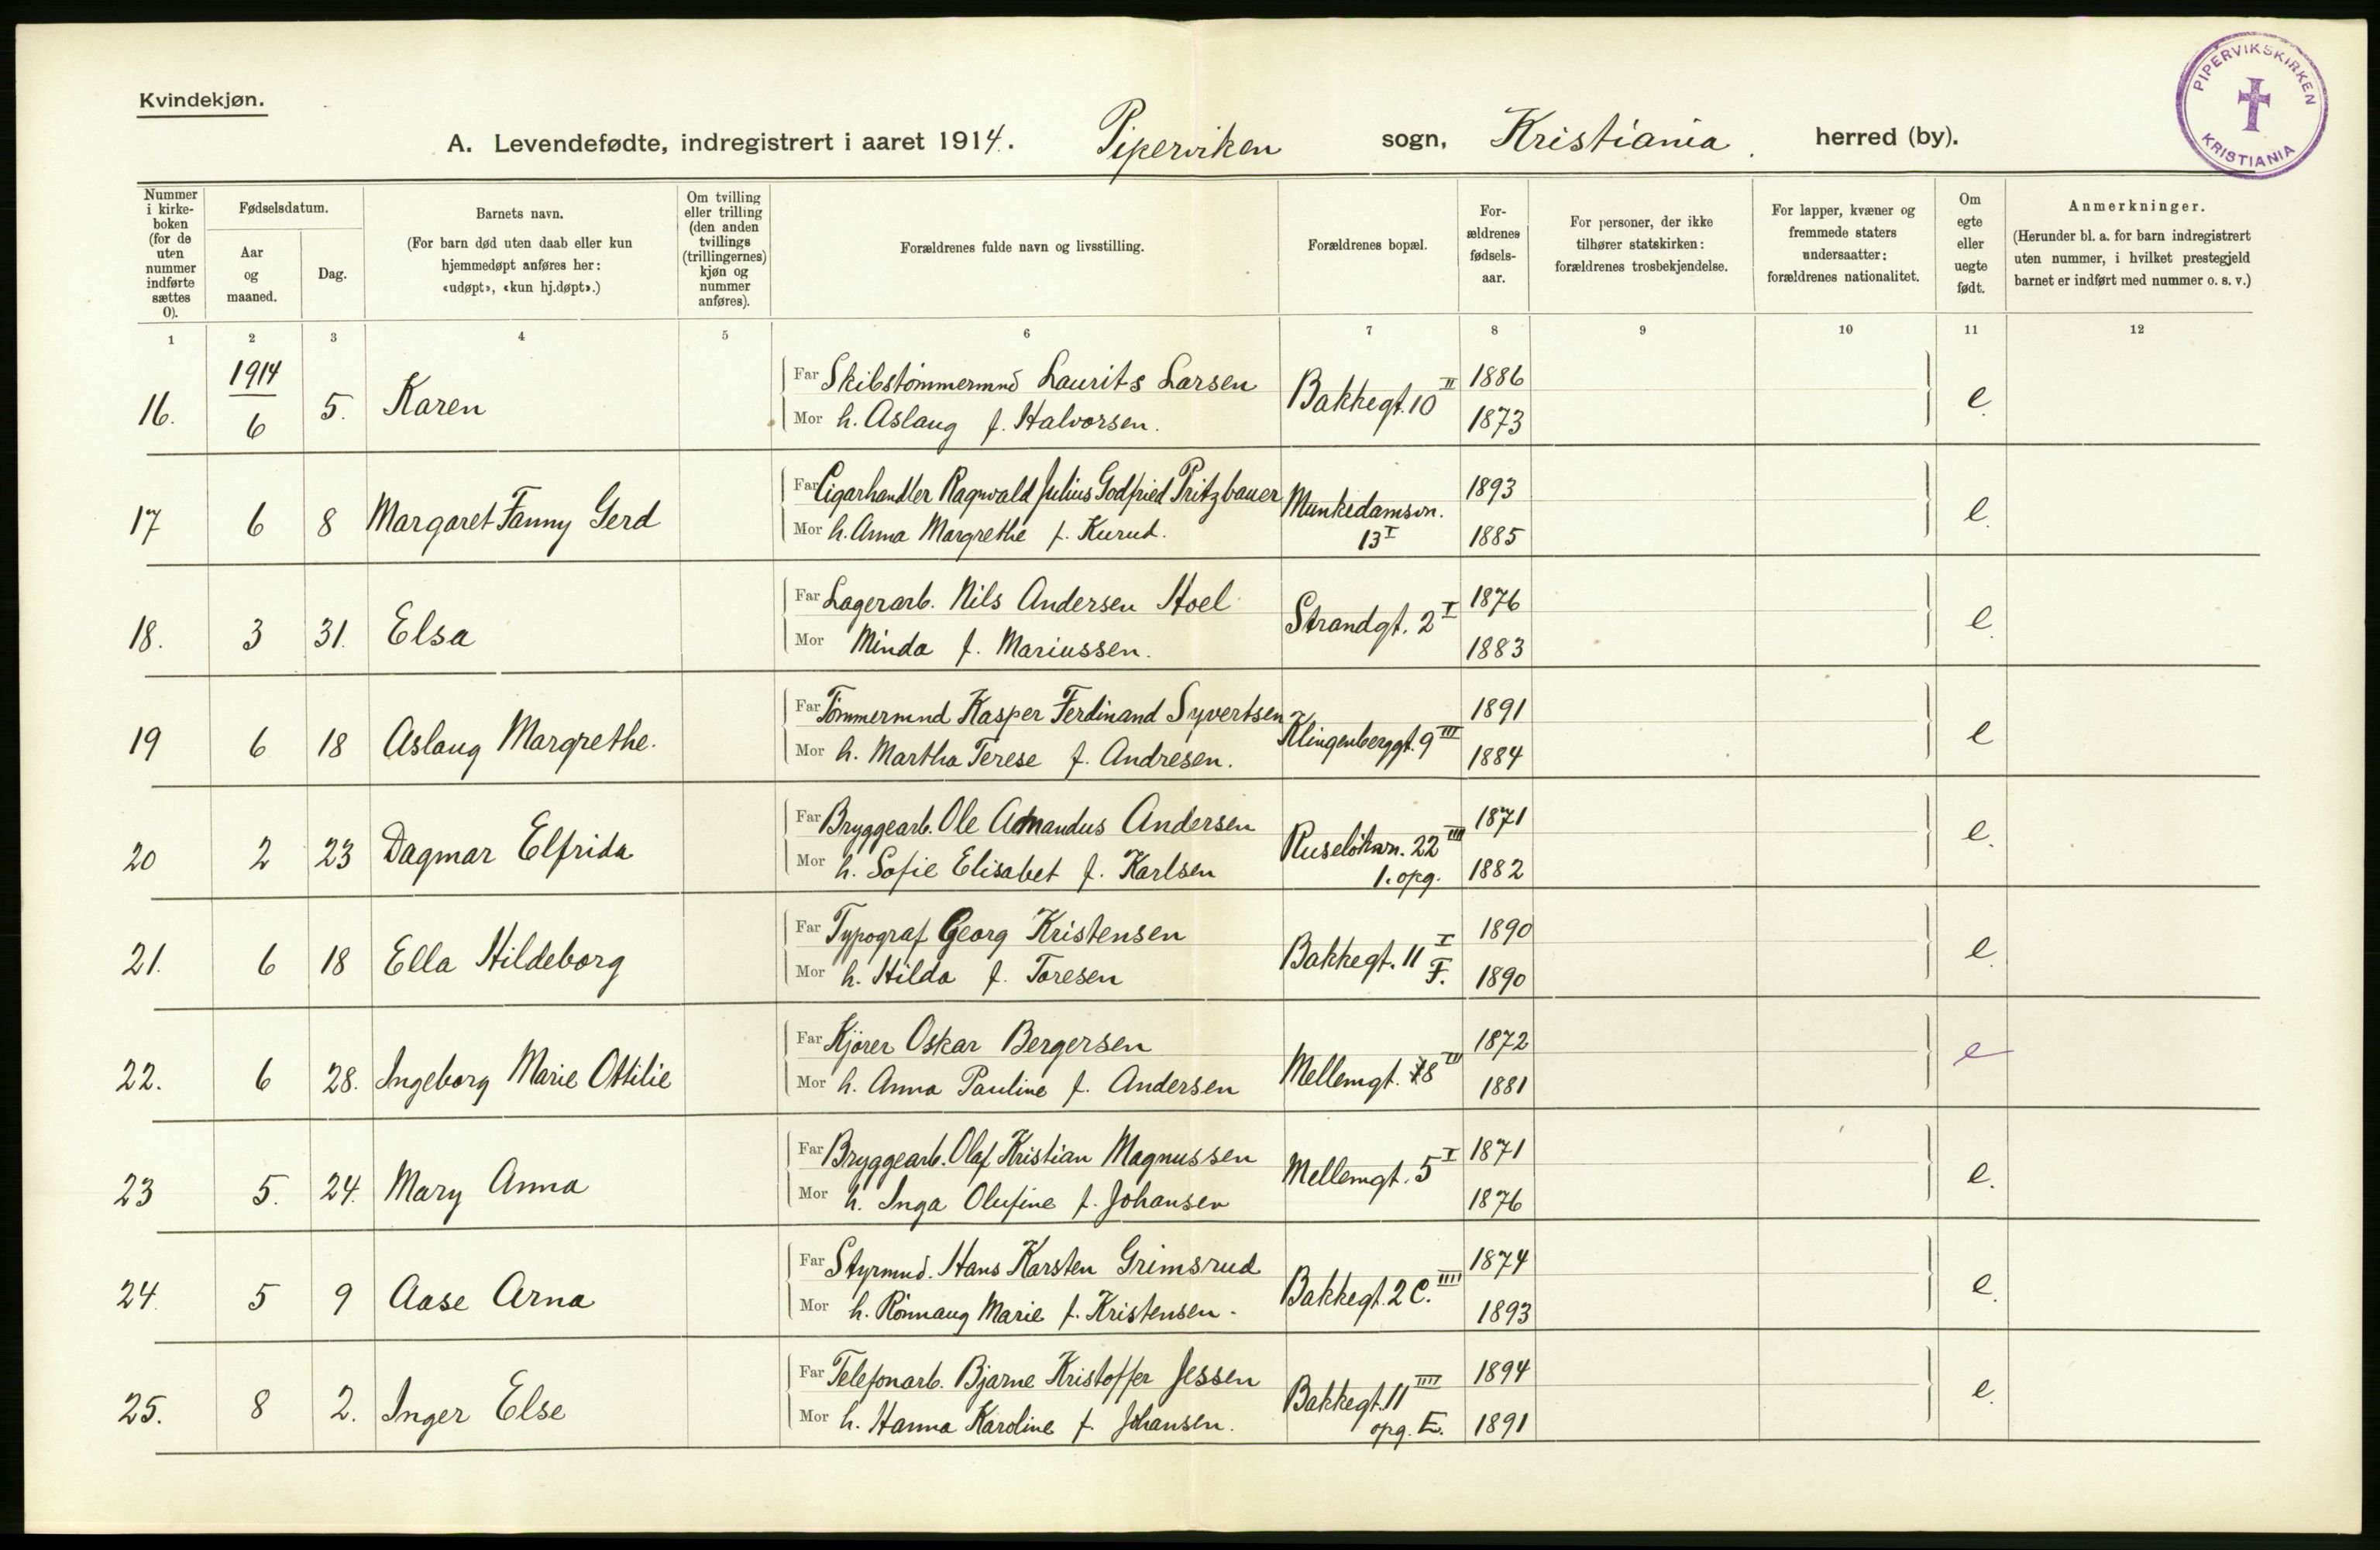 Kvindekjøn.
A. Levendefødte, indregistrert i aaret 1914. Piperviken sogn, Kristiania. herred (by).
PIPERVIKSKIRKEN KRISTIANIA
Nummer i kirkeboken (for de uten nummer indførte sættes 0).
Fødselsdatum.
Aar og maaned.
Dag.
Barnets navn. (For barn død uten daab eller kun hjemmedøpt anføres her: «udøpt», «kun hj.døpt».)
Om tvilling eller trilling (den anden tvillings (trillingernes) kjøn og nummer anføres).
Forældrenes fulde navn og livsstilling.
Forældrenes bopæl.
Forældrenes fødselsaar.
For personer, der ikke tilhører statskirken: forældrenes trosbekjendelse.
For lapper, kvæner og fremmede staters undersaatter: forældrenes nationalitet.
Om egte eller uegte født.
Anmerkninger. (Herunder bl. a. for barn indregistrert uten nummer, i hvilket prestegjeld barnet er indført med nummer o. s. v.)
1 2 3 4 5 6 7 8 9 10 11 12
16. 1914 6 5. Karen Far Skibstömmermnd Laurits Larsen Bakkegt. 10 II 1886 e.
Mor h. Aslaug f. Halvorsen. 1873
17 6 8 Margaret Fanny Gerd Far Cigarhandler Ragnvald Julius Godfried Pritzbauer Munkedamsvn. 1893 e.
Mor h. Anna Margrethe f. Kurud. 13 I 1885
18. 3 31. Elsa Far Lagerarb. Nils Andersen Hoel Strandgt. 2 I 1876 e.
Mor Minda f. Mariussen. 1883
19 6 18 Aslaug Margrethe. Far Tömmermnd Kasper Ferdinand Syvertsen Klingenberggt. 9 III 1891 e
Mor h. Martha Terese f. Andresen. 1884
20 2 23 Dagmar Elfrida Far Bryggearb. Ole Amandus Andersen Ruselökvn. 22 III 1871 e.
Mor h. Sofie Elisabet f. Karlsen 1. opg. 1882
21. 6 18 Ella Hildeborg Far Typograf Georg Kristensen Bakkegt. 11 I 1890 e.
Mor h. Hilda f. Toresen F. 1890
22. 6 28. Ingeborg Marie Ottilie Far Kjörer Oskar Bergersen Mellemgt. 8 1872 e
Mor h. Anna Pauline f. Andersen 1881
23 5. 24. Mary Anna Far Bryggearb. Olaf Kristian Magnussen Mellemgt. 5 I 1871 e.
Mor h. Inga Olufine f. Johansen 1876
24. 5 9 Aase Arna Far Styrmnd. Hans Karsten Grimsrud Bakkegt. 2 C. IIII 1874 e.
Mor h. Rönnaug Marie f. Kristensen. 1893
25. 8 2. Inger Else Far Telefonarb. Bjarne Kristoffer Jessen Bakkegt. 11 IIII 1894 e.
Mor h. Hanna Karoline f. Johansen. opg. E. 1891